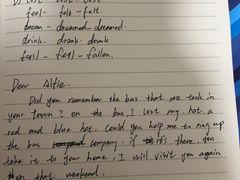 feel - felt - felt.
dream - dreamed - dreamed.
drink - drank - drunk
fall - fell - fallen.
Dear Alfie.
Did you remember the bus that we took in
your town? On the bus, I lost my hat a
red and blue hat. Could you help me to ring up
the bus company. if it's there. You
take it to your home, I will visit you again
on that weekend.